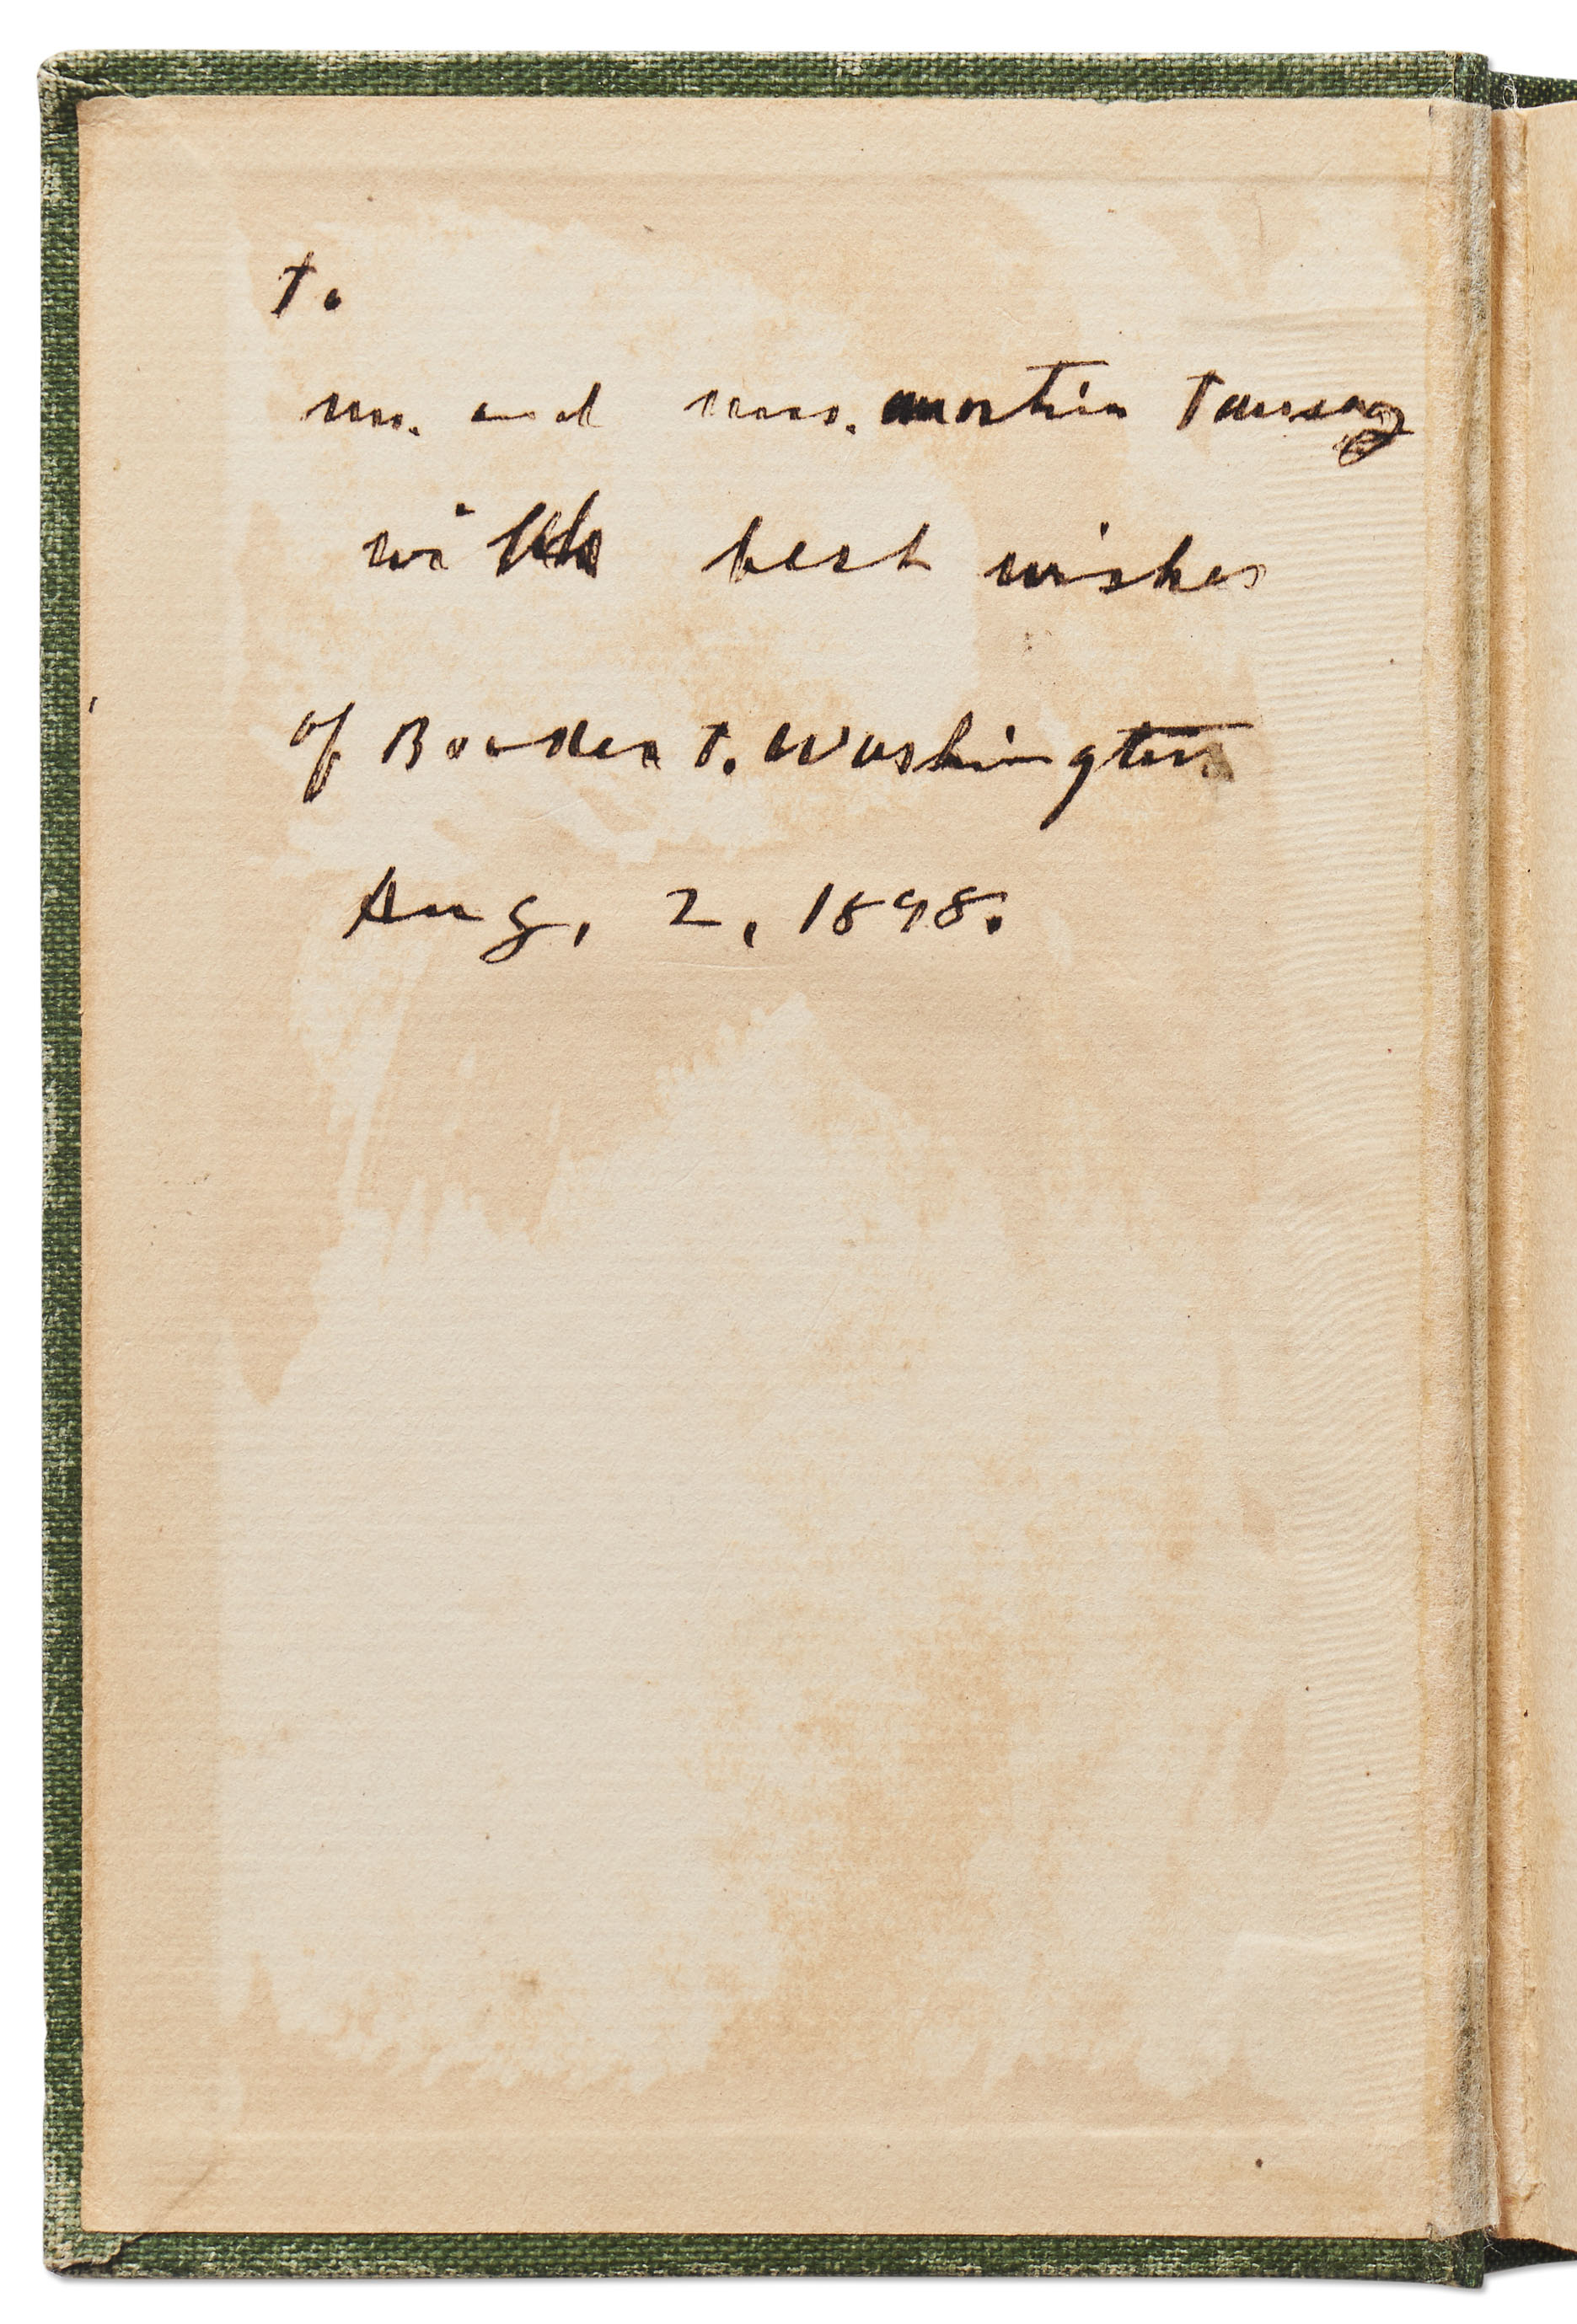 To
Mr. and Mrs. Martin Taussig
with best wishes
of Booker T. Washington
Aug, 2, 1898.